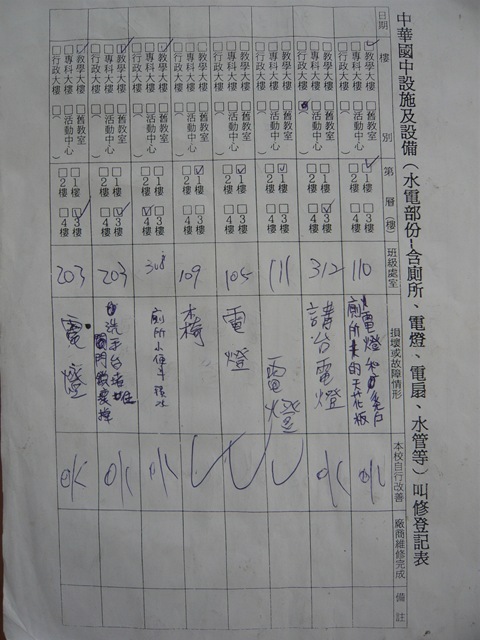 中華國中設施及設備（水電部份-含廁所、電燈、電扇、水管等）叫修登記表
日期 樓別 第層(樓) 班級處室 損壞或故障情形 本校自行改善 廠商維修完成 備註
☑教學大樓 □舊教室 □專科大樓 □活動中心 □行政大樓 □（ ） ☑1樓 □3樓 □2樓 □4樓 110 OK
□教學大樓 □舊教室 □專科大樓 □活動中心 □行政大樓 （ ） □1樓 ☑3樓 □2樓 □4樓 312 講台電燈 OK
□教學大樓 □舊教室 □專科大樓 □活動中心 □行政大樓 □（ ） ☑1樓 □3樓 □2樓 □4樓 111 電燈 ✓
□教學大樓 □舊教室 □專科大樓 □活動中心 □行政大樓 □（ ） ☑1樓 □3樓 □2樓 □4樓 105 電燈 ✓
□教學大樓 □舊教室 □專科大樓 □活動中心 □行政大樓 □（ ） ☑1樓 □3樓 □2樓 □4樓 109 ✓
☑教學大樓 □舊教室 □專科大樓 □活動中心 □行政大樓 □（ ） □1樓 □3樓 □2樓 ☑4樓 308 廁所小便斗 OK
☑教學大樓 □舊教室 □專科大樓 □活動中心 □行政大樓 □（ ） □1樓 ☑3樓 □2樓 □4樓 203 洗手台堵 OK
☑教學大樓 □舊教室 □專科大樓 □活動中心 □行政大樓 □（ ） □1樓 ☑3樓 □2樓 □4樓 203 電燈 OK